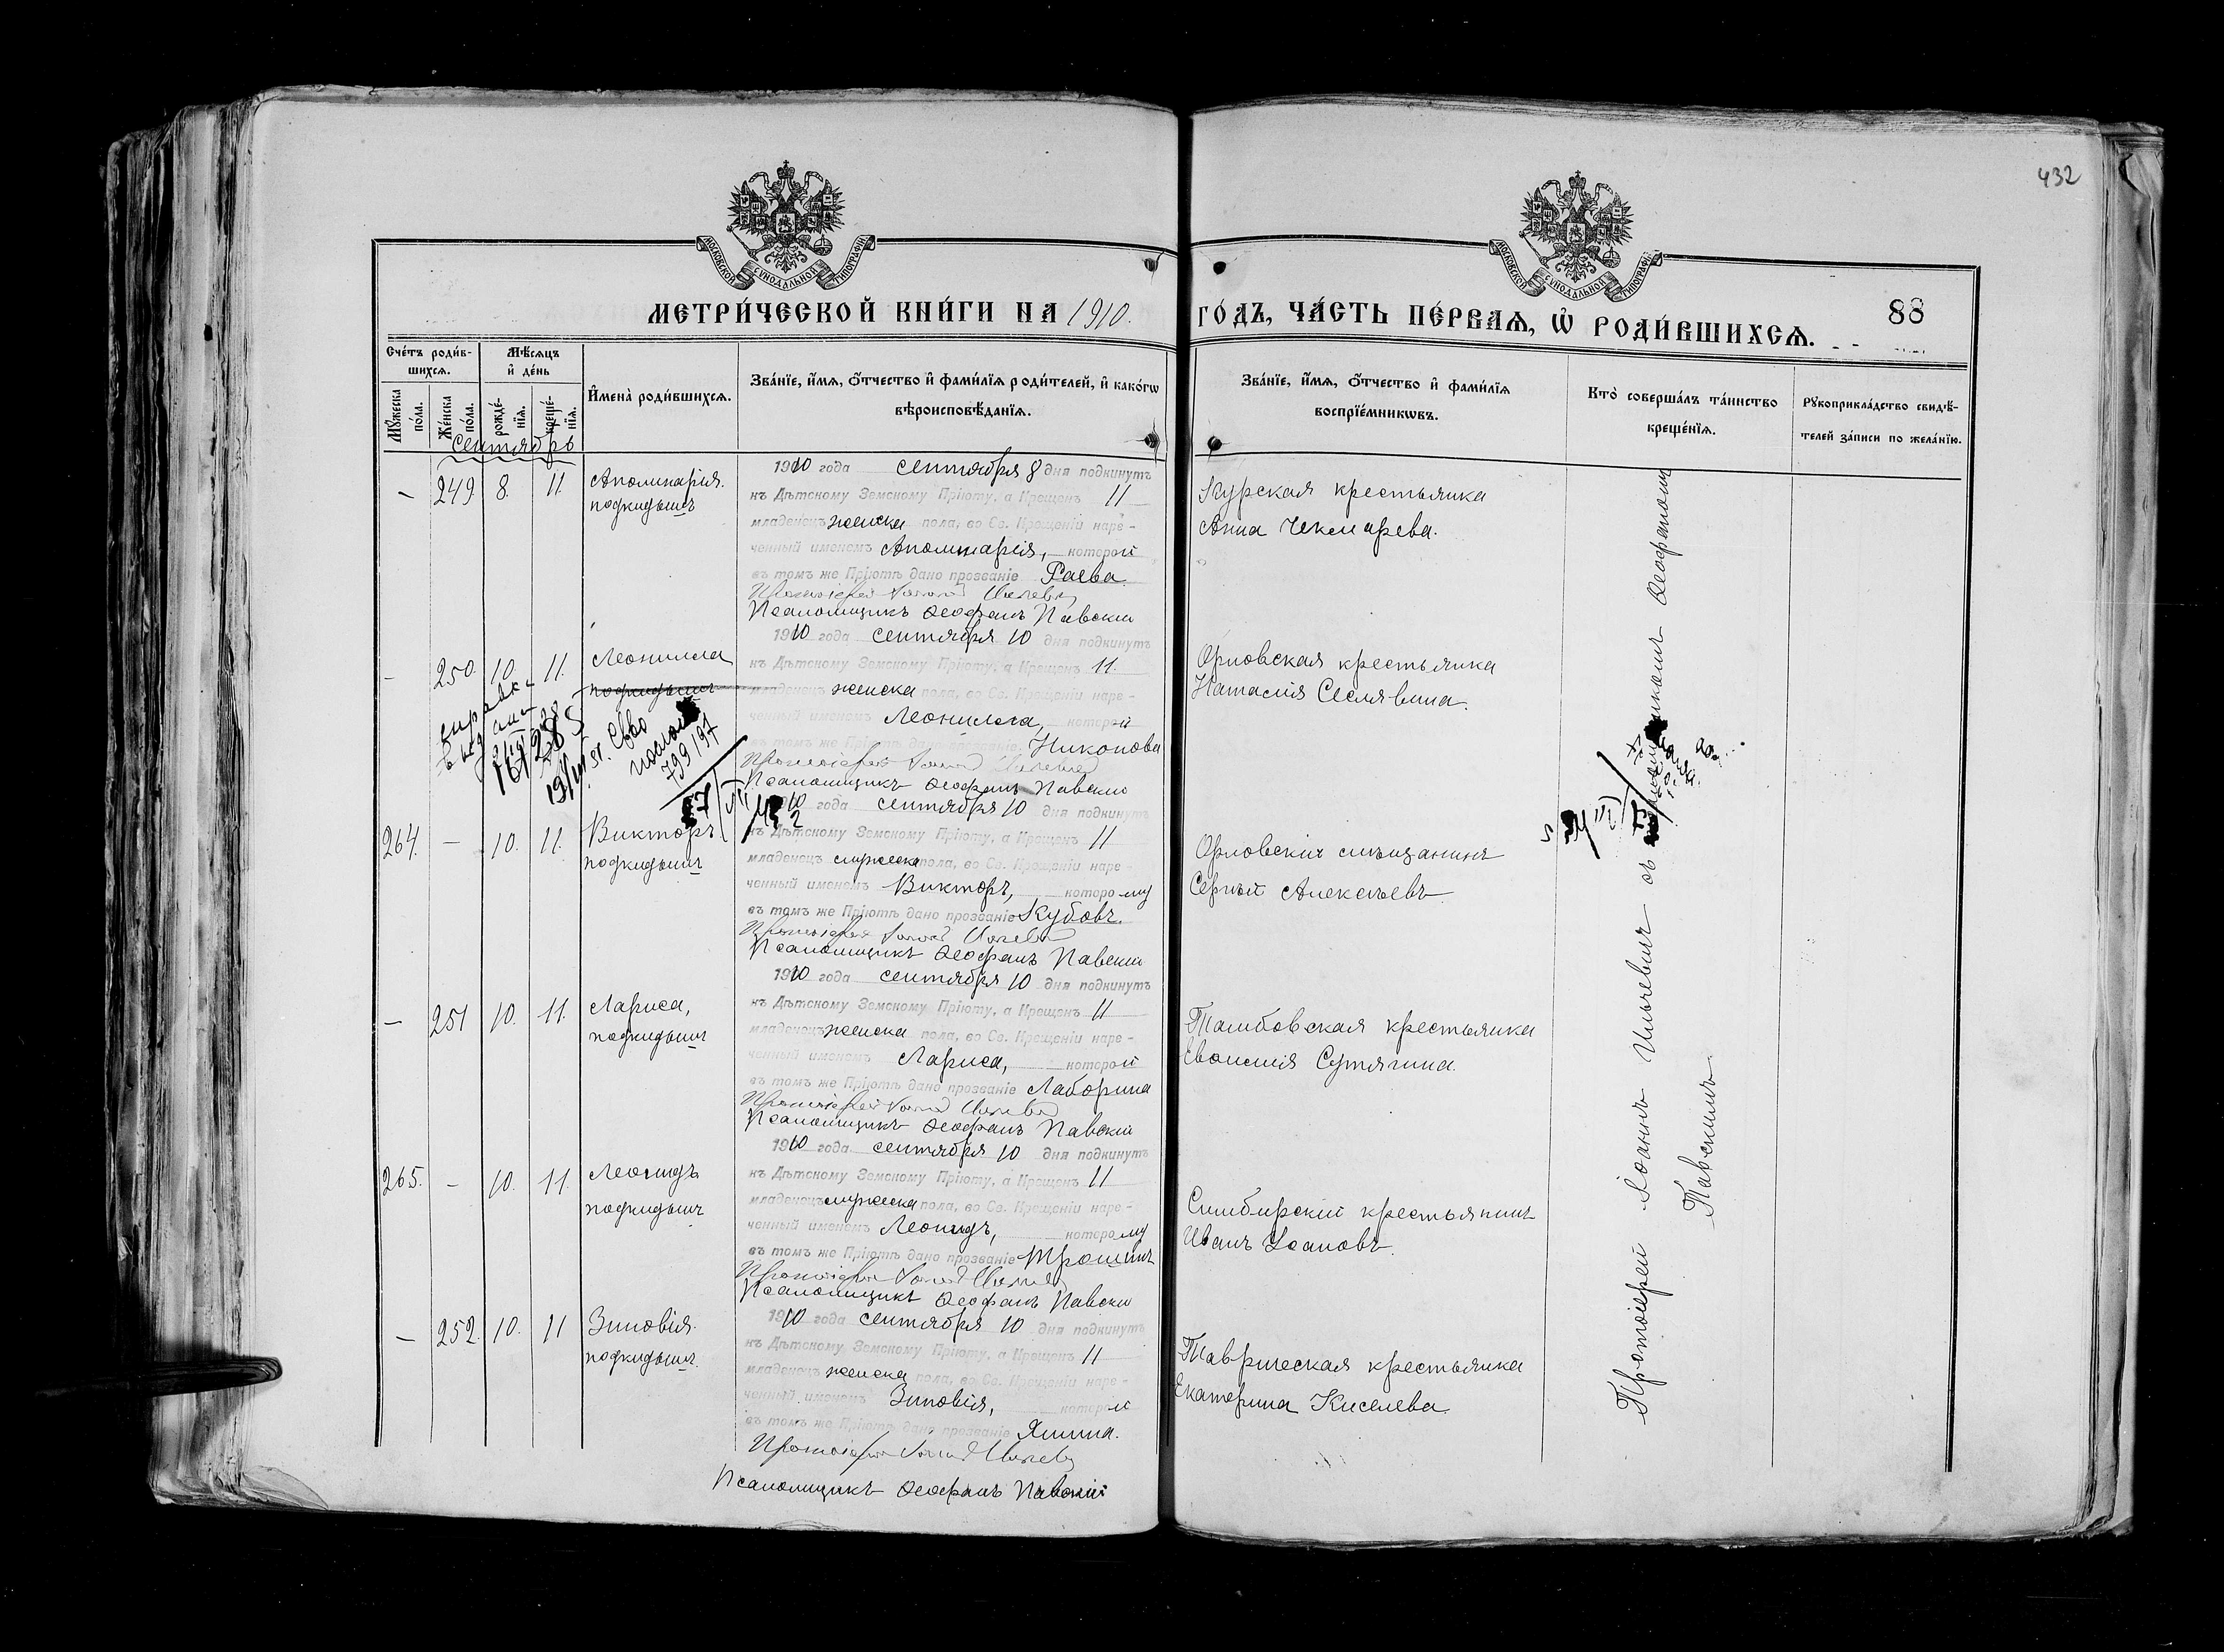 432
МОСКОВСКОЙ СѴНОДАЛЬНОЙ ТИПОГРАФІИ
МОСКОВСКОЙ СѴНОДАЛЬНОЙ ТИПОГРАФІИ
МЕТРИ́ЧЕСКОЙ КНИ́ГИ НА 1910. ГО́ДЪ, ЧА́СТЬ ПЕ́РВАѦ, Ѡ҆ РОДИ́ВШИХСѦ. 88
Сче́тъ роди́вшихсѧ.
Мꙋ́жеска по́ла.
Же́нска по́ла.
Мѣ́сѧцъ и҆ де́нь
рожде́нїѧ.
креще́нїѧ.
И҆мена̀ роди́вшихсѧ.
Зва́нїе, и҆́мѧ, ѻ҆́тчество и҆ фами́лїѧ роди́телей, и҆ како́гѡ
вѣроисповѣ́данїѧ.
Зва́нїе, и҆́мѧ, ѻ҆́тчество и҆ фами́лїѧ
воспрїе́мникѡвъ.
Кто̀ соверша́лъ та́инство
креще́нїѧ.
Рꙋкоприкла́дство свидѣ́-
телей за́писи по жела́нїю.
Сентябрь
— 249. 8. 11. Аполинарія.
подкидышъ
1910 года сентября 8 дня подкинутъ
къ Дѣтскому Земскому Пріюту, а Крещенъ 11
младенецъ женска пола, во Св. Крещеніи наре-
ченный именемъ Аполинарія, которой
въ томъ же Пріютѣ дано прозваніе Раева.
Псаломщикъ Ѳеофанъ Павскій
Курская крестьянка
Анна Чекмарева.
— 250. 10. 11. Леонилла
подкидышъ
1910 года сентября 10 дня подкинутъ
къ Дѣтскому Земскому Пріюту, а Крещенъ 11.
младенецъ женска пола, во Св. Крещеніи наре-
ченный именемъ Леонилла, которой
въ томъ же Пріютѣ дано прозваніе Никонова
Псаломщикъ Ѳеофанъ Павскій
Орловская крестьянка
Наталія Селявина.
799/97
264. — 10. 11. Викторъ
подкидышъ
1910 года сентября 10 дня подкинутъ
къ Дѣтскому Земскому Пріюту, а Крещенъ 11
младенецъ мужеска пола, во Св. Крещеніи наре-
ченный именемъ Викторъ, которому
въ томъ же Пріютѣ дано прозваніе Кубовъ.
Псаломщикъ Ѳеофанъ Павскій
Орловскій мѣщанинъ
Сергѣй Алексѣевъ.
— 251 10. 11. Лариса,
подкидышъ
1910 года сентября 10 дня подкинутъ
къ Дѣтскому Земскому Пріюту, а Крещенъ 11
младенецъ женска пола, во Св. Крещеніи наре-
ченный именемъ Лариса, которой
въ томъ же Пріютѣ дано прозваніе Лаборина
Псаломщикъ Ѳеофанъ Павскій
Тамбовская крестьянка
Сутягина.
265. — 10. 11. Леонидъ
подкидышъ
1910 года сентября 10 дня подкинутъ
къ Дѣтскому Земскому Пріюту, а Крещенъ 11
младенецъ мужеска пола, во Св. Крещеніи наре-
ченный именемъ Леонидъ, которому
въ томъ же Пріютѣ дано прозваніе Трошинъ
Псаломщикъ Ѳеофанъ Павскій
Симбирскій крестьянинъ
Иванъ
— 252. 10. 11 Зиновія.
подкидышъ.
1910 года сентября 10 дня подкинутъ
къ Дѣтскому Земскому Пріюту, а Крещенъ 11
младенецъ женска пола, во Св. Крещеніи наре-
ченный именемъ Зиновія, которой
въ томъ же Пріютѣ дано прозваніе Яшина.
Псаломщикъ Ѳеофанъ Павскій
Таврическая крестьянка
Екатерина Киселева.
Протоіерей Іоаннъ Ильчевичъ съ псаломщикомъ Ѳеофаномъ
Павскимъ